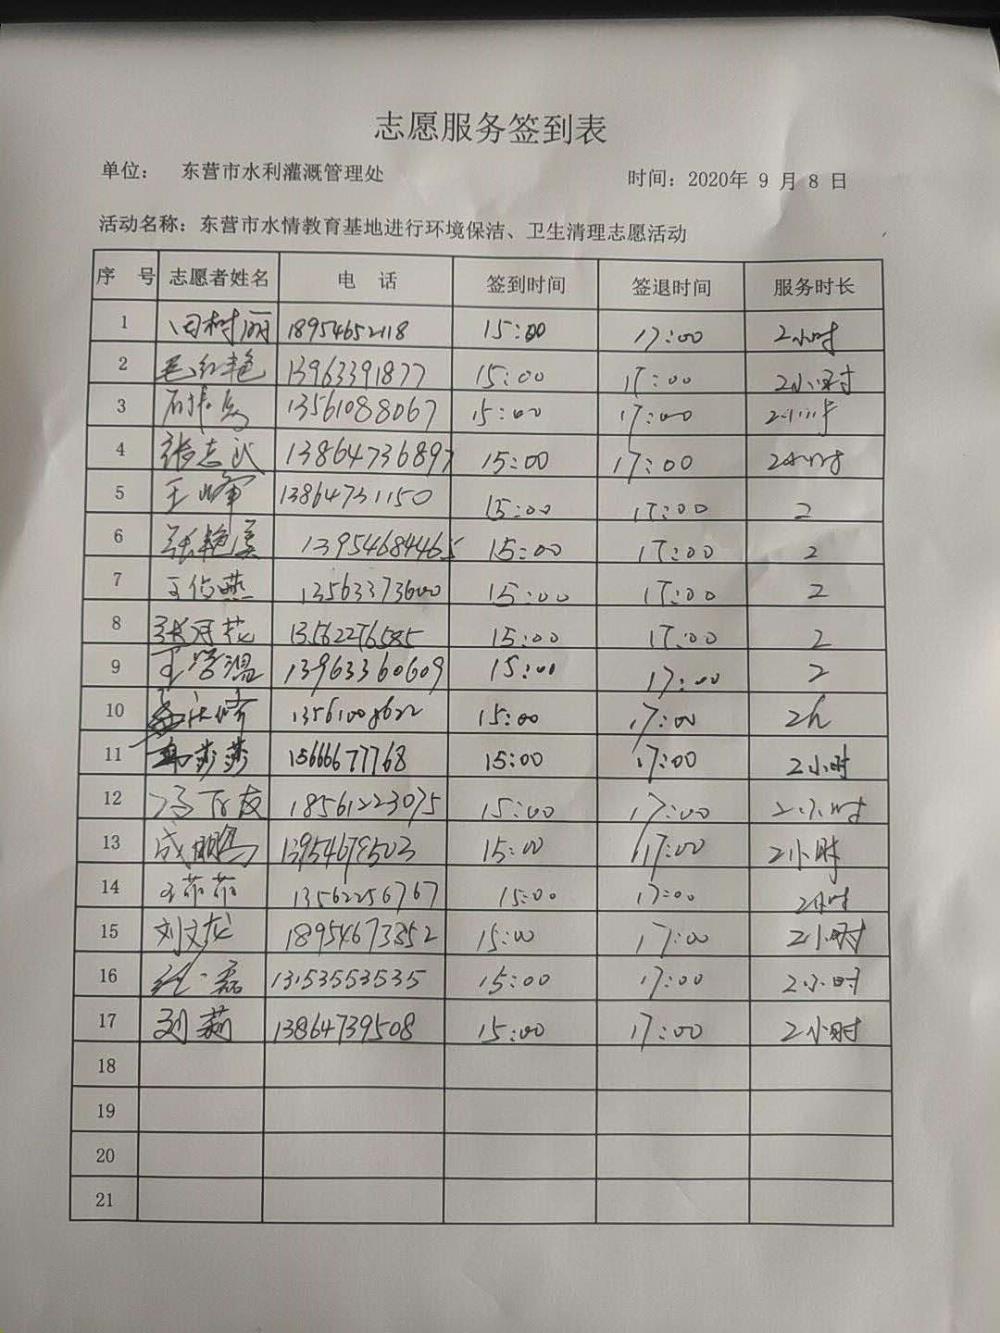 志愿服务签到表
单位： 东营市水利灌溉管理处 时间：2020年 9 月 8 日
活动名称：东营市水情教育基地进行环境保洁、卫生清理志愿活动
序 号 志愿者姓名 电 话 签到时间 签退时间 服务时长
1 田树丽 18954652118 15:00 17:00 2小时
2 毛红艳 13963391877 15:00 17:00 2小时
3 13561088067 15:00 17:00 2小时
4 张志武 13864736897 15:00 17:00 2小时
5 王峰 13864731150 15:00 17:00 2
6 张艳 13954684465 15:00 17:00 2
7 王伯燕 13563373600 15:00 17:00 2
8 张河花 13562276585 15:00 17:00 2
9 王 13963360609 15:00 17:00 2
10 13561008622 15:00 17:00 2h
11 莎莎 15666677768 15:00 17:00 2小时
12 冯 友 18561223075 15:00 17:00 2小时
13 成鹏 13954678503 15:00 17:00 2小时
14 王菲菲 13562256767 15:00 17:00 2小时
15 刘文龙 18954673352 15:00 17:00 2小时
16 任磊 13153553535 15:00 17:00 2小时
17 刘莉 13864739508 15:00 17:00 2小时
18
19
20
21